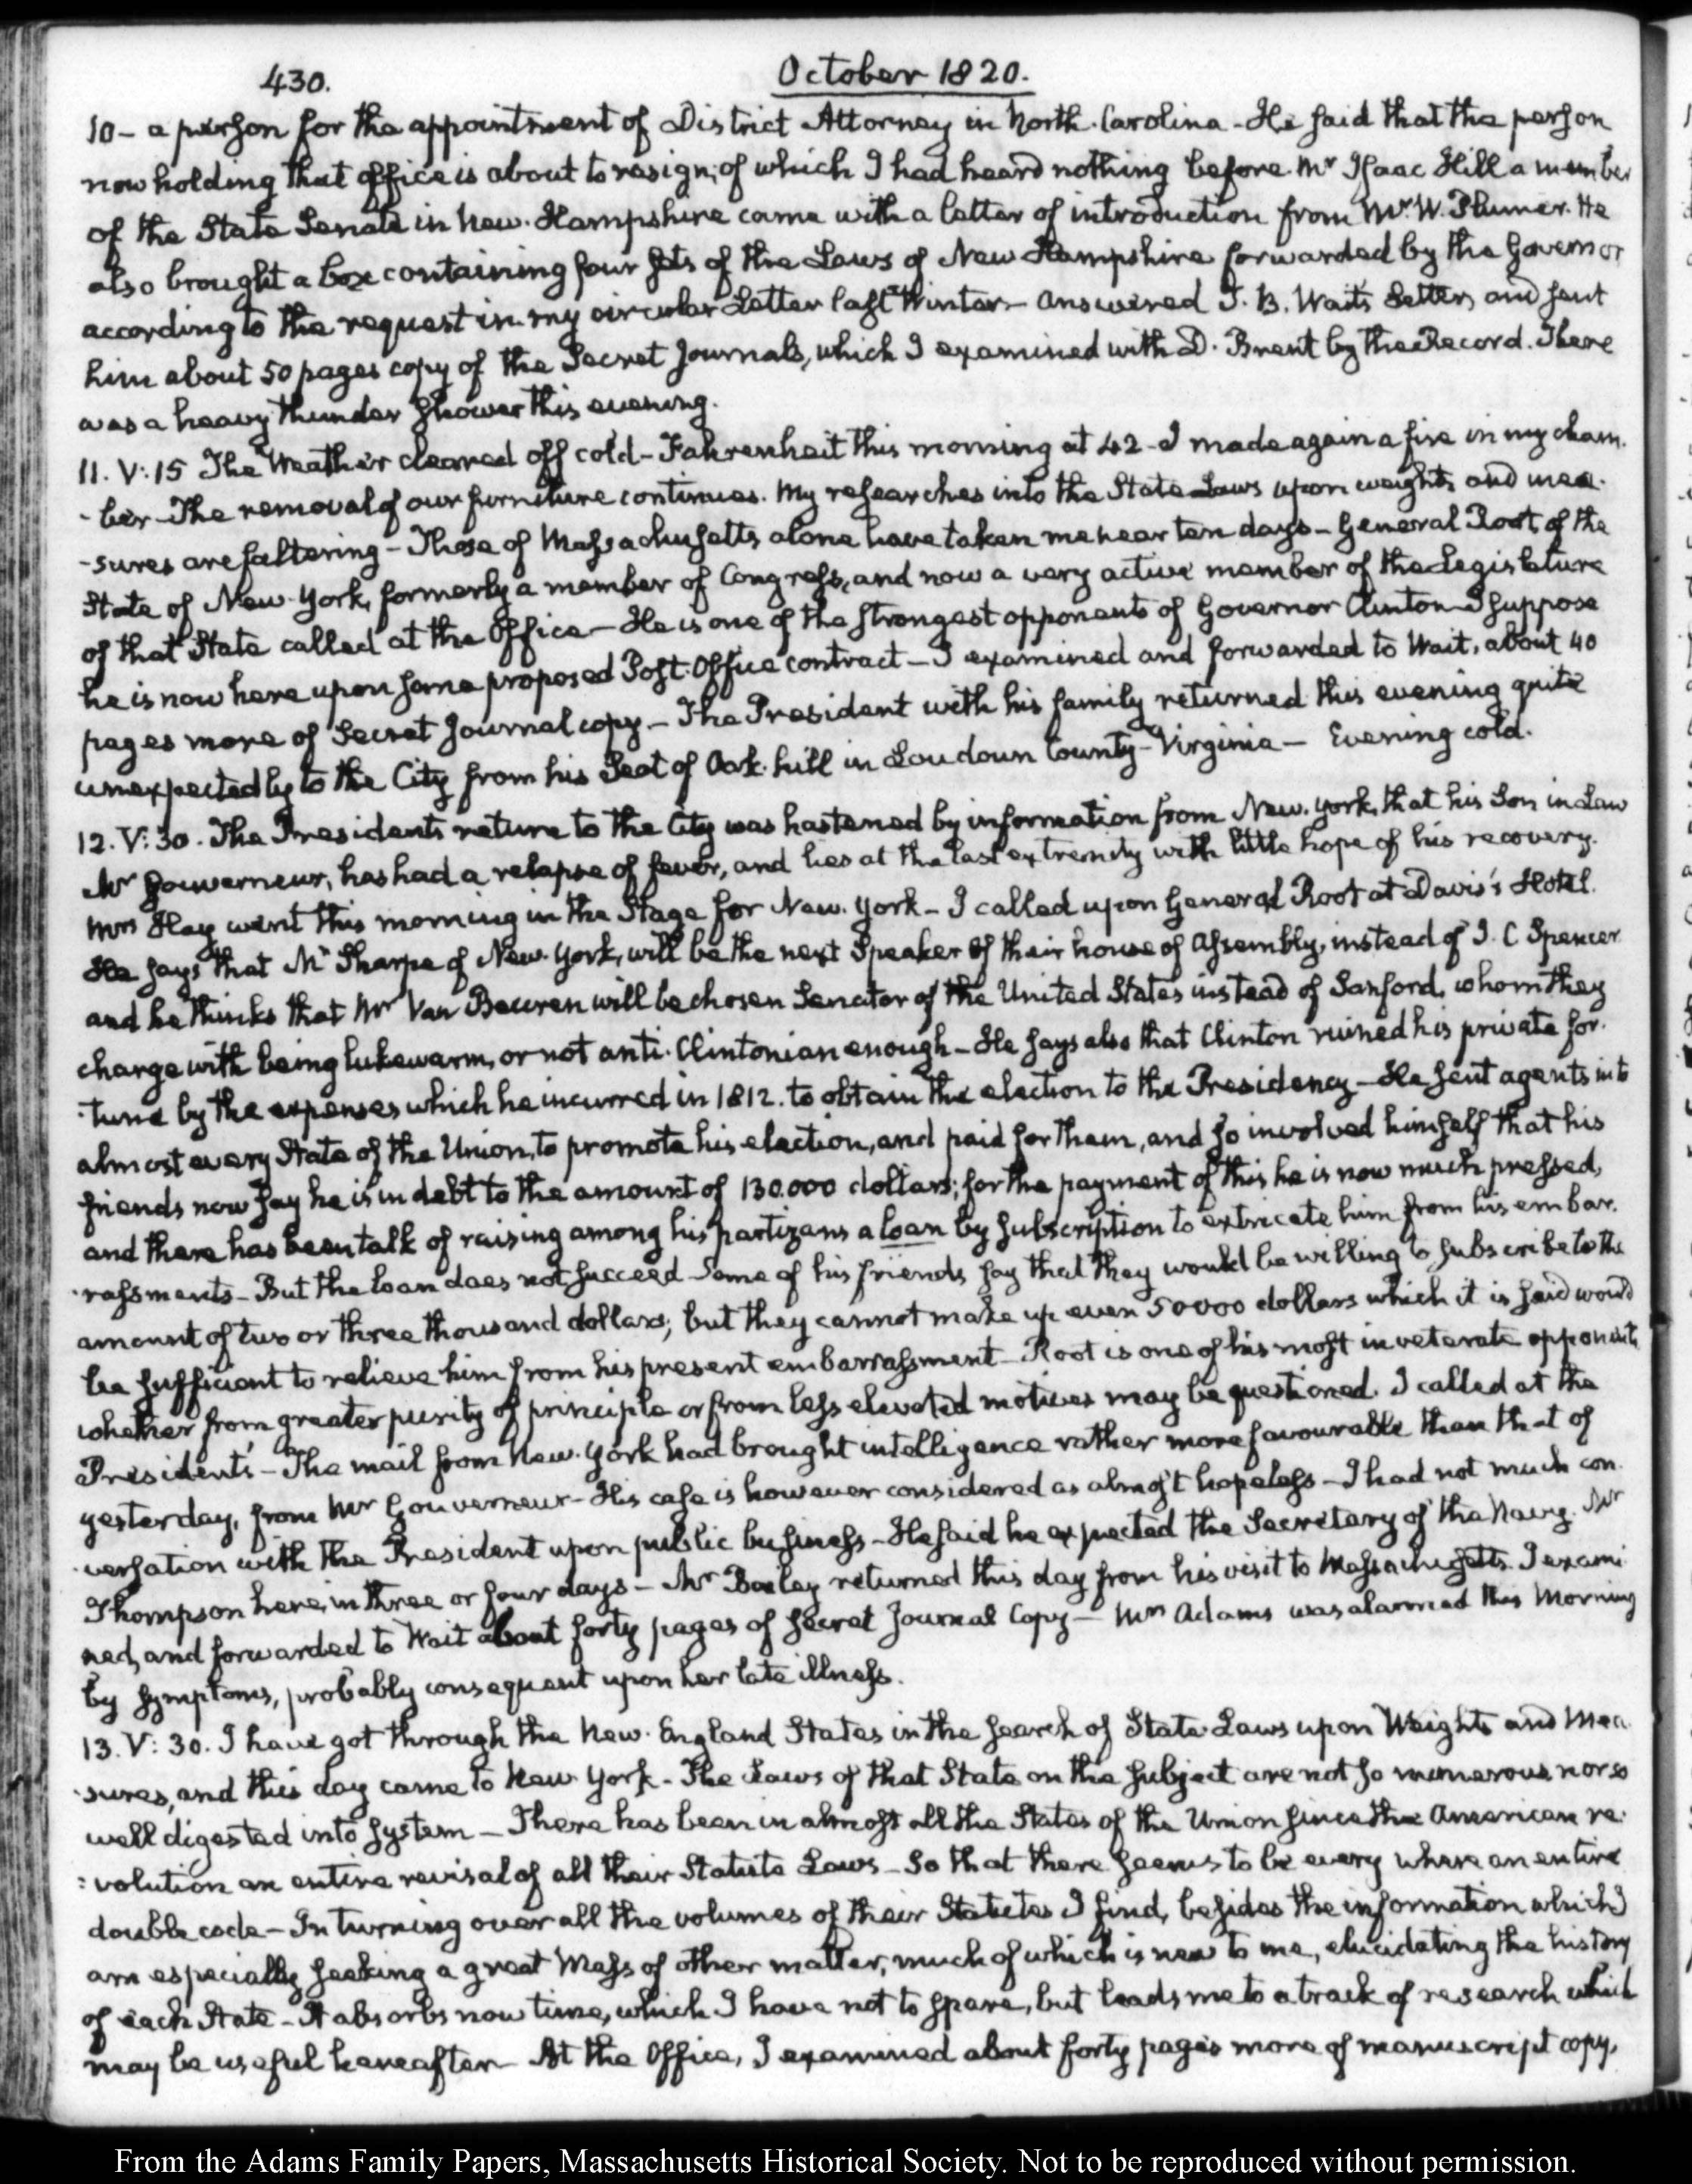 430.
October 1820.
10- a person for the appointment of District Attorney in North-Carolina - He said that the person
now holding that office is about to resign; of which I had heard nothing before. Mr Isaac Hill a member
of the State Senate in New-Hampshire came with a letter of introduction from Mr W. Plumer. He
also brought a box containing four sets of the Laws of New Hampshire forwarded by the Governor
according to the request in my circular Letter last Winter - Answered T. B. Wait's Letter, and sent
him about 50 pages copy of the Secret Journals, which I examined with D. Brent by the Record. There
was a heavy thunder shower this evening.
11. V:15 The Weather cleared off cold - Fahrenheit this morning at 42 - I made again a fire in my cham-
-ber - The removal of our furniture continues. My researches into the State Laws upon weights and mea-
-sures are faltering - Those of Massachusetts alone have taken me near ten days - General Root of the
State of New-York, formerly a member of Congress, and now a very active member of the Legislature
of that State called at the Office - He is one of the strongest opponents of Governor Clinton I suppose
he is now here upon some proposed Post-Office contract - I examined and forwarded to Wait, about 40
pages more of Secret Journal copy - The President with his family returned this evening quite
unexpectedly to the City from his Seat of Oak-hill in Loudoun County - Virginia - Evening cold.
12. V:30. The President's return to the City was hastened by information from New-York, that his Son in Law
Mr Gouverneur, has had a relapse of fever, and lies at the last extremity with little hope of his recovery.
Mrs Hay went this morning in the Stage for New-York - I called upon General Root at Davis's Hotel.
He says that Mr Sharpe of New-York, will be the next Speaker of their house of Assembly, instead of J. C Spencer
and he thinks that Mr Van Beuren will be chosen Senator of the United States instead of Sanford, whom they
charge with being lukewarm, or not anti-Clintonian enough - He says also that Clinton ruined his private for-
-tune by the expenses which he incurred in 1812. to obtain the election to the Presidency - He sent agents into
almost every State of the Union, to promote his election, and paid for them, and so involved himself that his
friends now say he is in debt to the amount of 130.000 dollars; for the payment of this he is now much pressed,
and there has been talk of raising among his partizans a loan by subscription to extricate him from his embar-
-rassments - But the loan does not succeed - Some of his friends say that they would be willing to subscribe to the
amount of two or three thousand dollars; but they cannot make up even 50000 dollars which it is said would
be sufficient to relieve him from his present embarrassment - Root is one of his most inveterate opponents
whether from greater purity of principle or from less elevated motives may be questioned. I called at the
President's - The mail from New-York had brought intelligence rather more favourable than that of
yesterday, from Mr Gouverneur - His case is however considered as almost hopeless - I had not much con-
-versation with the President upon public business - He said he expected the Secretary of the Navy Mr
Thompson here, in three or four days - Mr Bailey returned this day from his visit to Massachusetts. I exami-
ned, and forwarded to Wait about forty pages of Secret Journal Copy - Mrs Adams was alarmed this Morning
by symptoms, probably consequent upon her late illness.
13. V:30. I have got through the New-England States in the search of State-Laws upon Weights and Mea-
-sures, and this day came to New-York - The Laws of that State on the subject are not so numerous nor so
well digested into system - There has been in almost all the States of the Union since the American re-
:volution an entire revisal of all their Statute Laws - So that there seems to be every where an entire
double code - In turning over all the volumes of their Statutes I find, besides the information which I
am especially seeking a great Mass of other matter, much of which is new to me, elucidating the history
of each State - It absorbs now time, which I have not to spare, but leads me to a track of research which
may be useful hereafter - At the Office, I examined about forty pages more of manuscript copy,
From the Adams Family Papers, Massachusetts Historical Society. Not to be reproduced without permission.